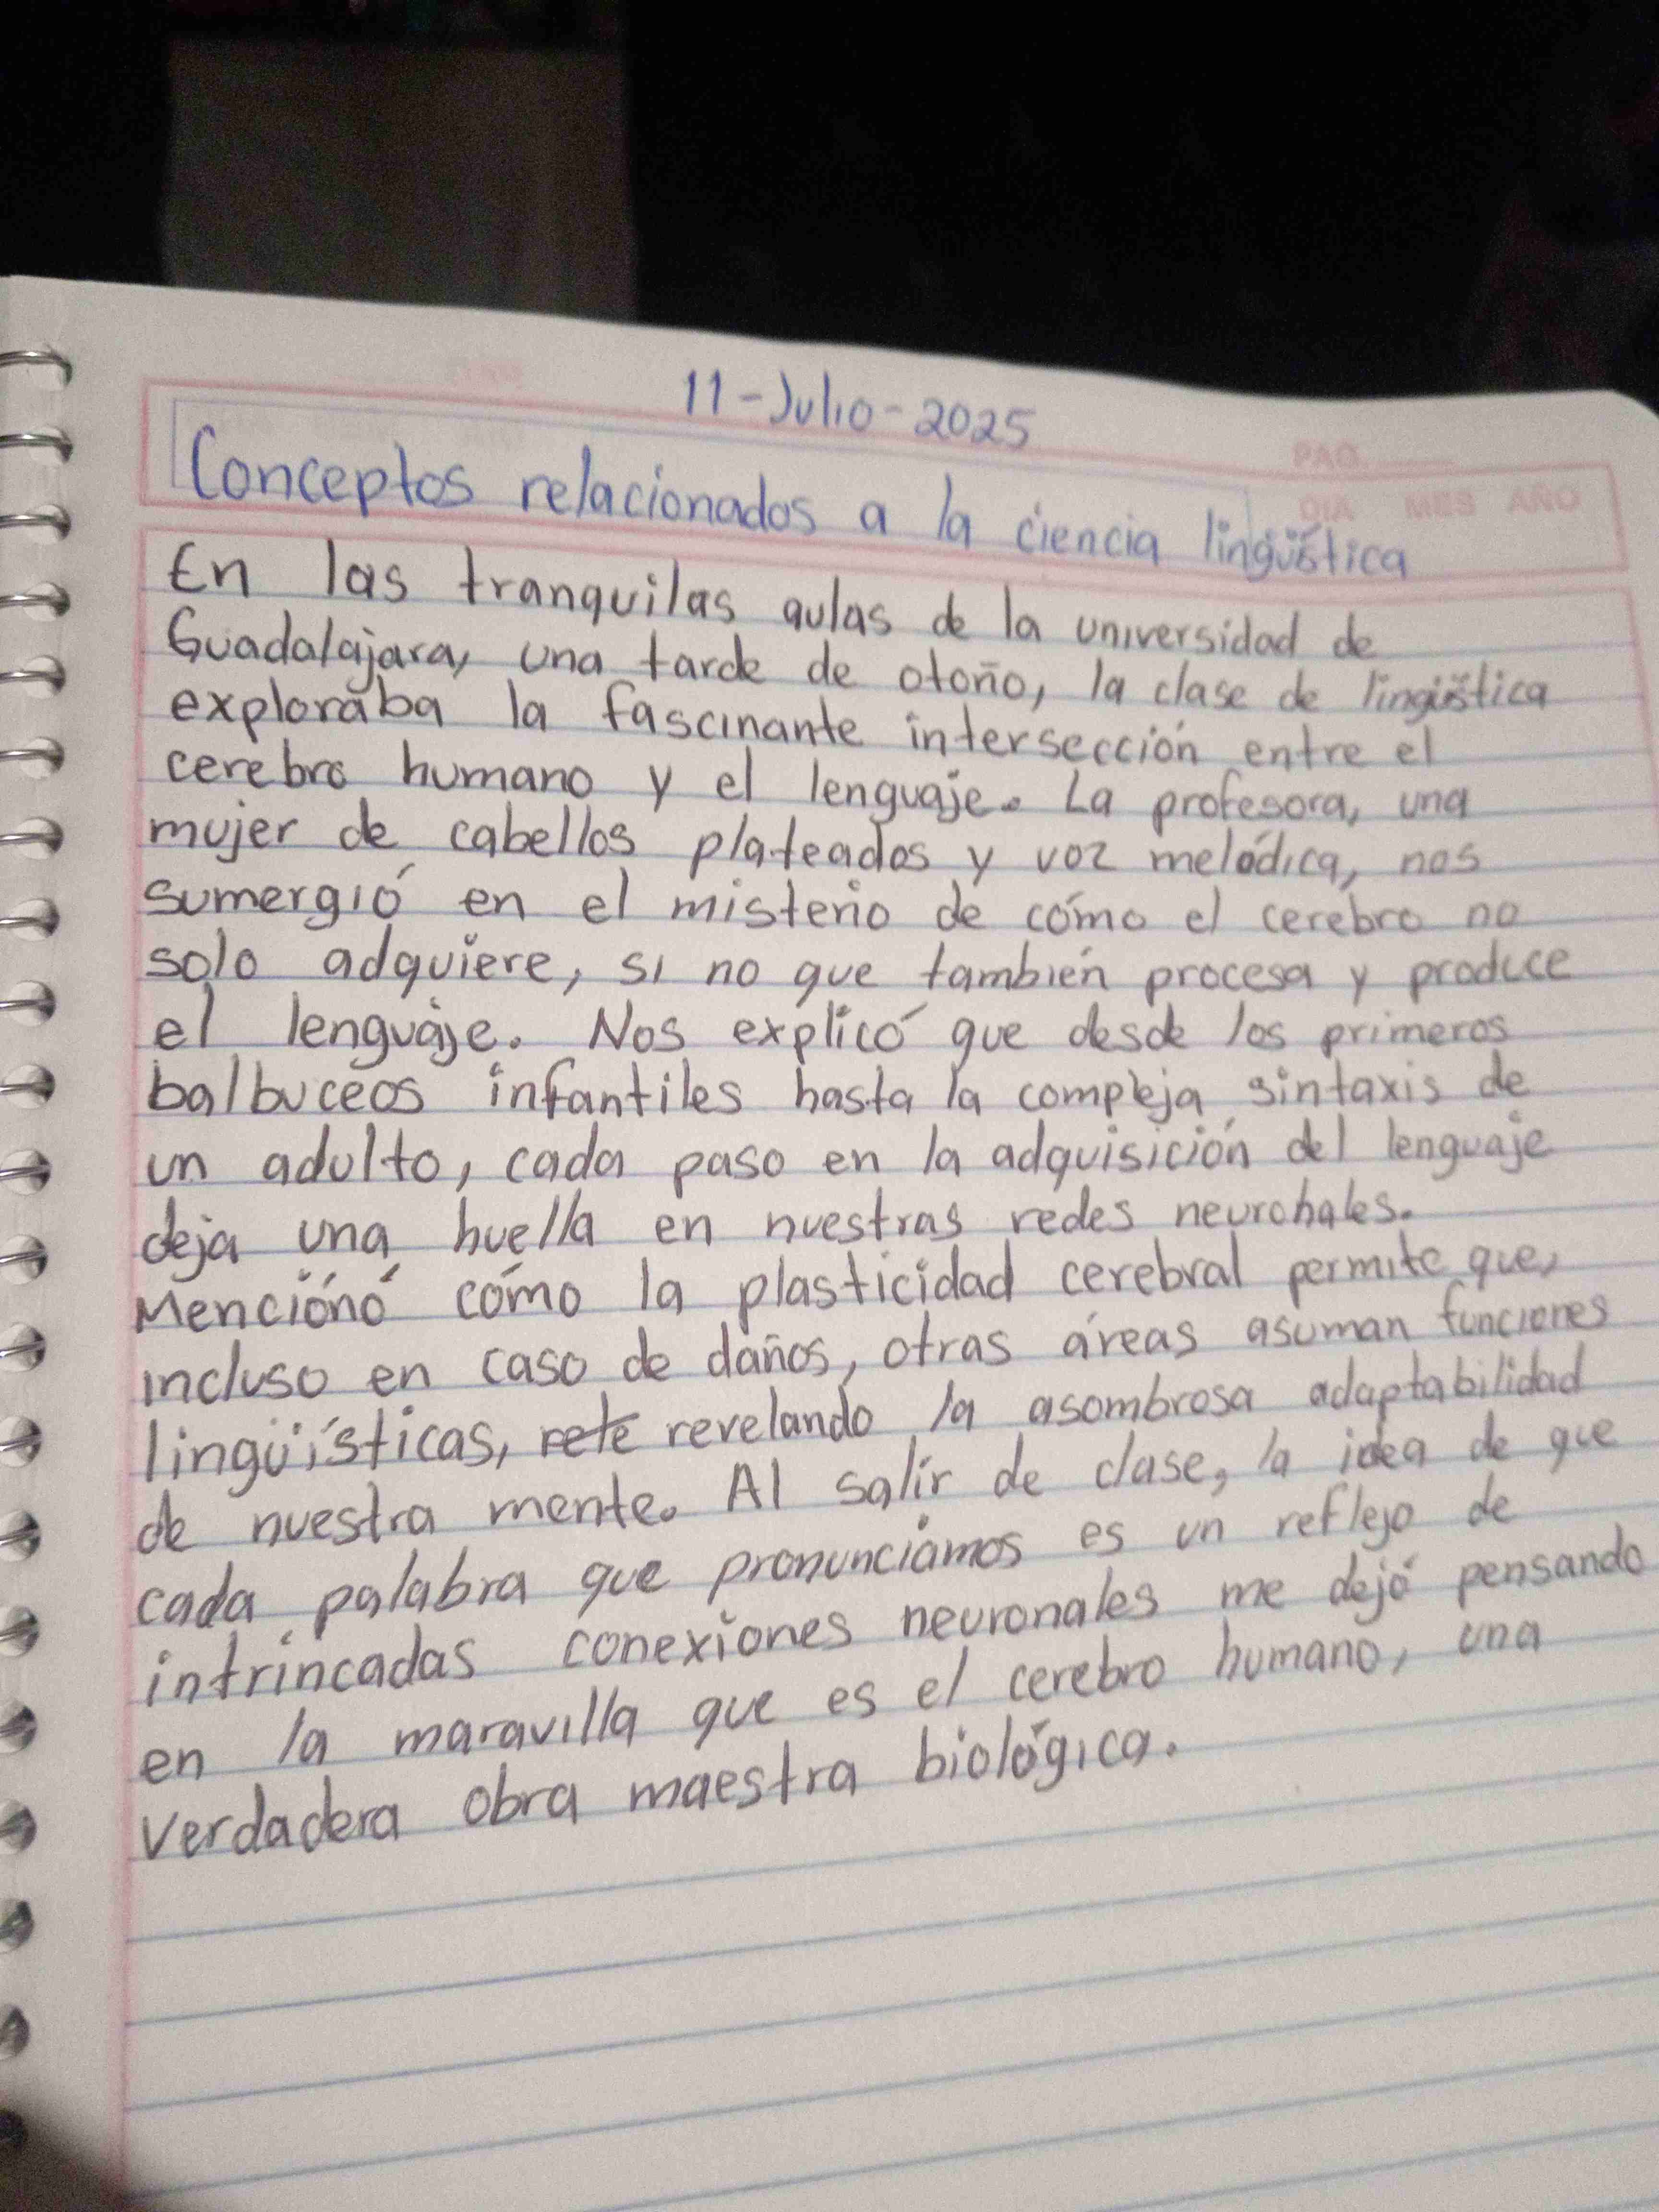 11-Julio-2025
PAG.
DIA MES AÑO
Conceptos relacionados a la ciencia lingüística
En las tranquilas aulas de la universidad de
Guadalajara, una tarde de otoño, la clase de lingüística
exploraba la fascinante intersección entre el
cerebro humano y el lenguaje. La profesora, una
mujer de cabellos plateados y voz melódica, nos
sumergió en el misterio de cómo el cerebro no
solo adquiere, si no que también procesa y produce
el lenguaje. Nos explicó que desde los primeros
balbuceos infantiles hasta la compleja sintaxis de
un adulto, cada paso en la adquisición del lenguaje
deja una huella en nuestras redes neuronales.
Mencionó cómo la plasticidad cerebral permite que,
incluso en caso de daños, otras áreas asuman funciones
lingüísticas, rete revelando la asombrosa adaptabilidad
de nuestra mente. Al salir de clase, la idea de que
cada palabra que pronunciamos es un reflejo de
intrincadas conexiones neuronales me dejó pensando
en la maravilla que es el cerebro humano, una
verdadera obra maestra biológica.